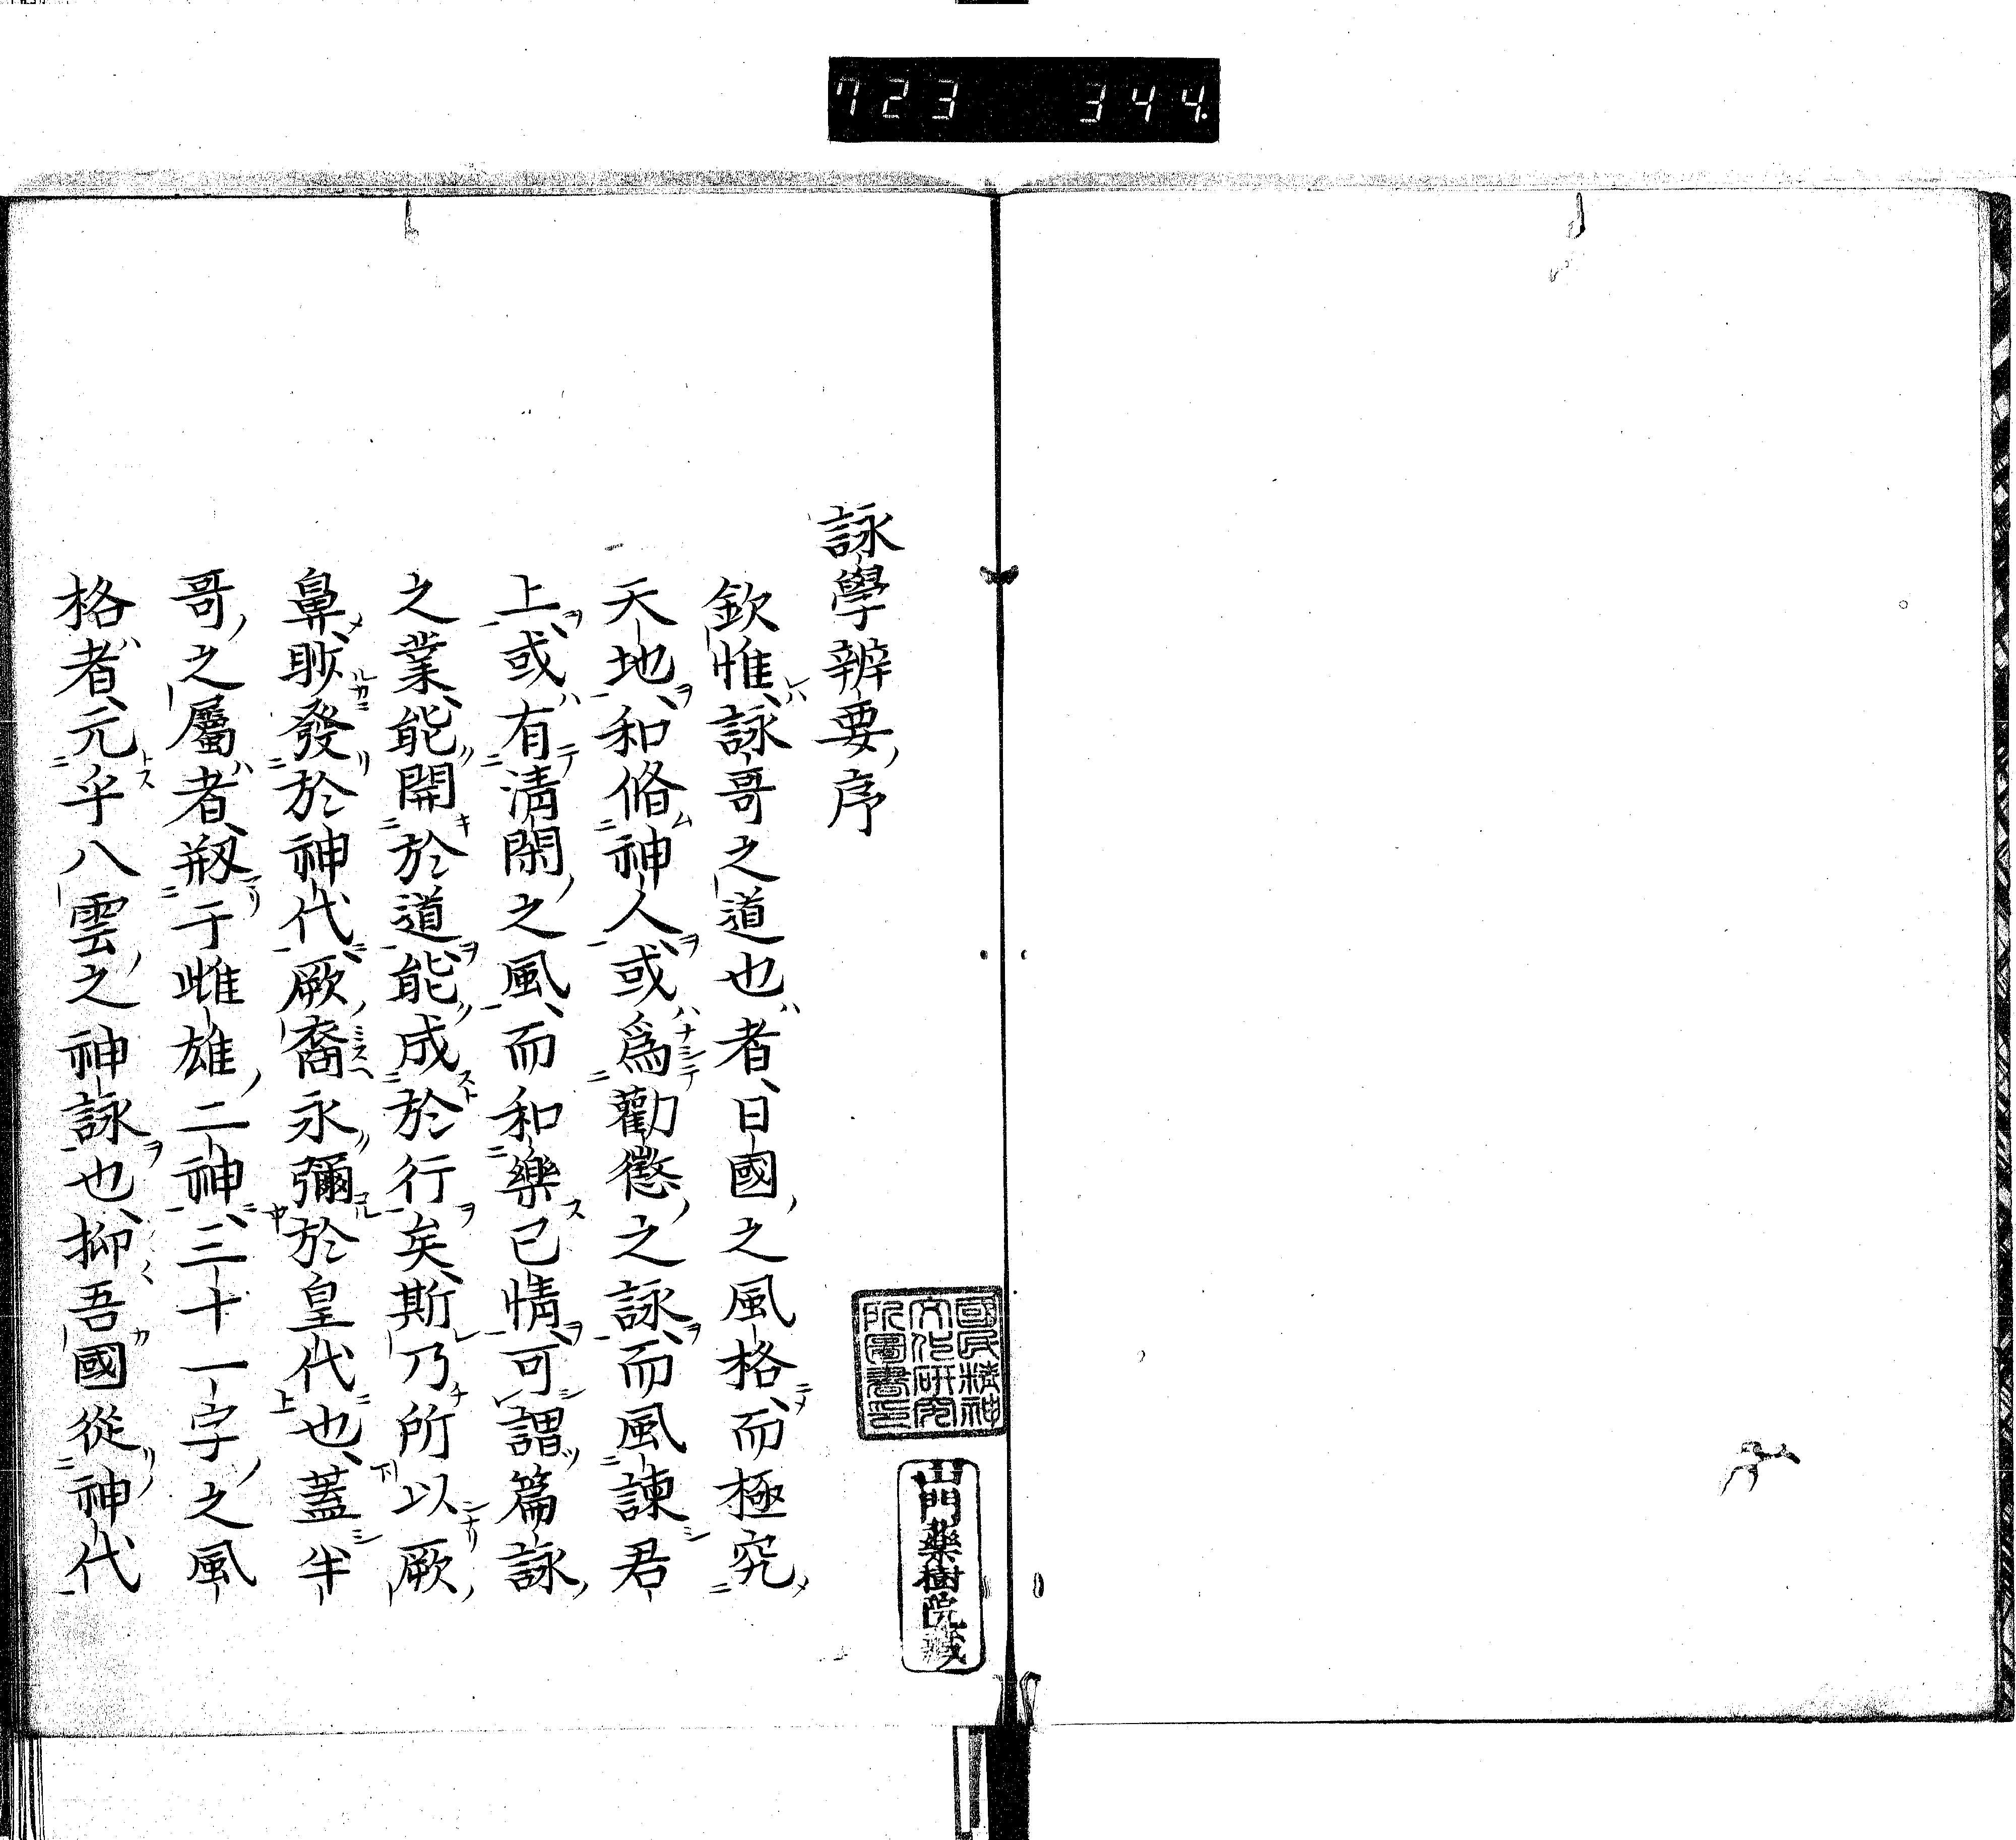 723 344
詠學辨要序
欽惟詠哥之道也者日國之風格而極究
天地和脩神人或爲勸懲之詠而風諫君
上或有清閑之風而和樂己情可謂篇詠
之業能開於道能成於行矣斯乃所以厥
鼻耿發於神代厥裔永彌於皇代也蓋半
哥之屬者剏于雌雄二神三十一字之風
格者元乎八雲之神詠也抑吾國從神代
國民精神
文化研究
所圖書之印
山門藥樹院藏